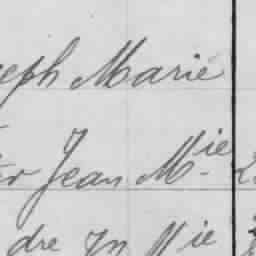 eph Marie
Jean M^ie
dre Jn M^ie